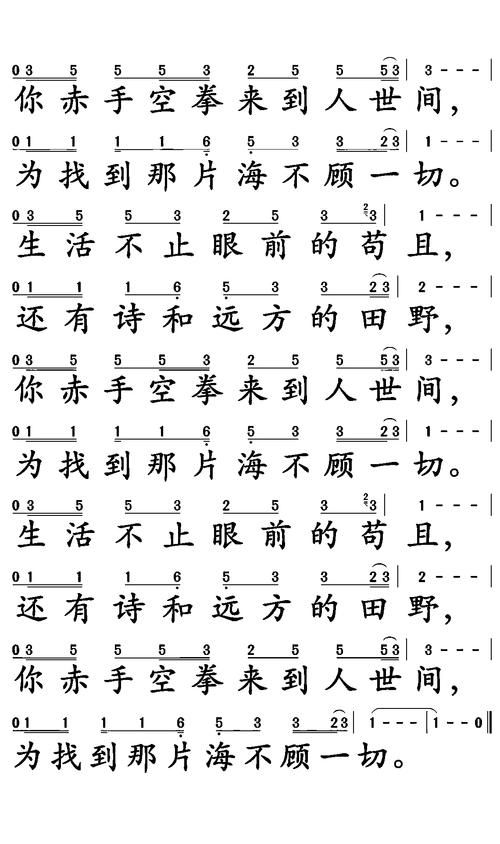 03 5 5 5 3 2 5 5 53 | 3 - - - |
你赤手空拳来到人世间，
01 1 1 1 6 5 3 3 23 | 1 - - - |
为找到那片海不顾一切。
03 5 5 3 2 5 3 23 | 1 - - - |
生活不止眼前的苟且，
01 1 1 6 5 3 3 23 | 2 - - - |
还有诗和远方的田野，
03 5 5 5 3 2 5 5 53 | 3 - - - |
你赤手空拳来到人世间，
01 1 1 1 6 5 3 3 23 | 1 - - - |
为找到那片海不顾一切。
03 5 5 3 2 5 3 23 | 1 - - - |
生活不止眼前的苟且，
01 1 1 6 5 3 3 23 | 2 - - - |
还有诗和远方的田野，
03 5 5 5 3 2 5 5 53 | 3 - - - |
你赤手空拳来到人世间，
01 1 1 1 6 5 3 3 23 | 1 - - - | 1 - - 0 ‖
为找到那片海不顾一切。